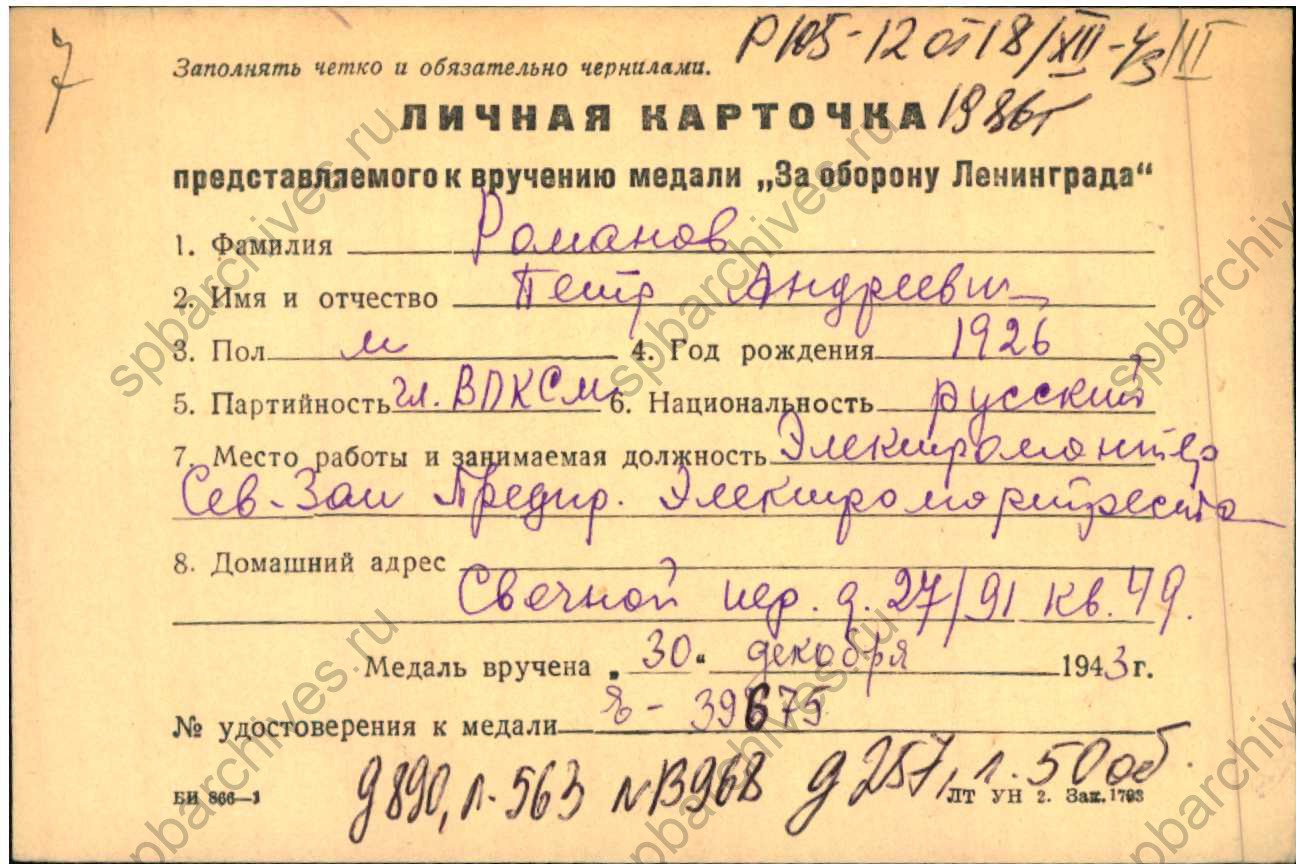 7
Р 105-12 от 18/XII-43/III
Заполнять четко и обязательно чернилами.
1986г
ЛИЧНАЯ КАРТОЧКА
представляемого к вручению медали „За оборону Ленинграда“
1. Фамилия Романов
2. Имя и отчество Петр Андреевич
3. Пол м 4. Год рождения 1926
5. Партийность чл. ВЛКСМ 6. Национальность русский
7. Место работы и занимаемая должность Электромонтер
Сев-Зап Предпр. Электромортреста
8. Домашний адрес
Свечной пер. д. 27/91 кв. 49.
Медаль вручена „30“ декабря 1943г.
№ удостоверения к медали - 39675
д890, л.563 №13968 д257, л.50об.
БИ 866—1 ЛТ УН 2. Зак. 1793
spbarchives.ru